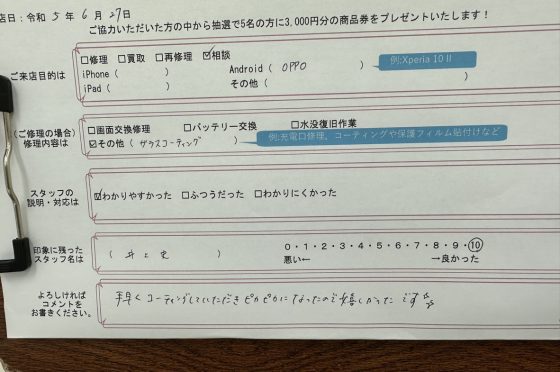 店日:令和 5 年 6 月 27日
ご協力いただいた方の中から抽選で5名の方に3,000円分の商品券をプレゼントいたします!
ご来店目的は
□修理 □買取 □再修理 ☑相談
iPhone ( ) Android ( OPPO )
iPad ( ) その他 ( )
例:Xperia 10 II
(ご修理の場合)
修理内容は
□画面交換修理 □バッテリー交換 □水没復旧作業
☑その他 ( ガラスコーティング )
例:充電口修理、コーティングや保護フィルム貼付けなど
スタッフの
説明・対応は
☑わかりやすかった □ふつうだった □わかりにくかった
印象に残った
スタッフ名は
( 井上 )
0・1・2・3・4・5・6・7・8・9・⑩
悪い← →良かった
よろしければ
コメントを
お書きください。
早くコーティングしていただきピカピカになったので嬉しかったです☆